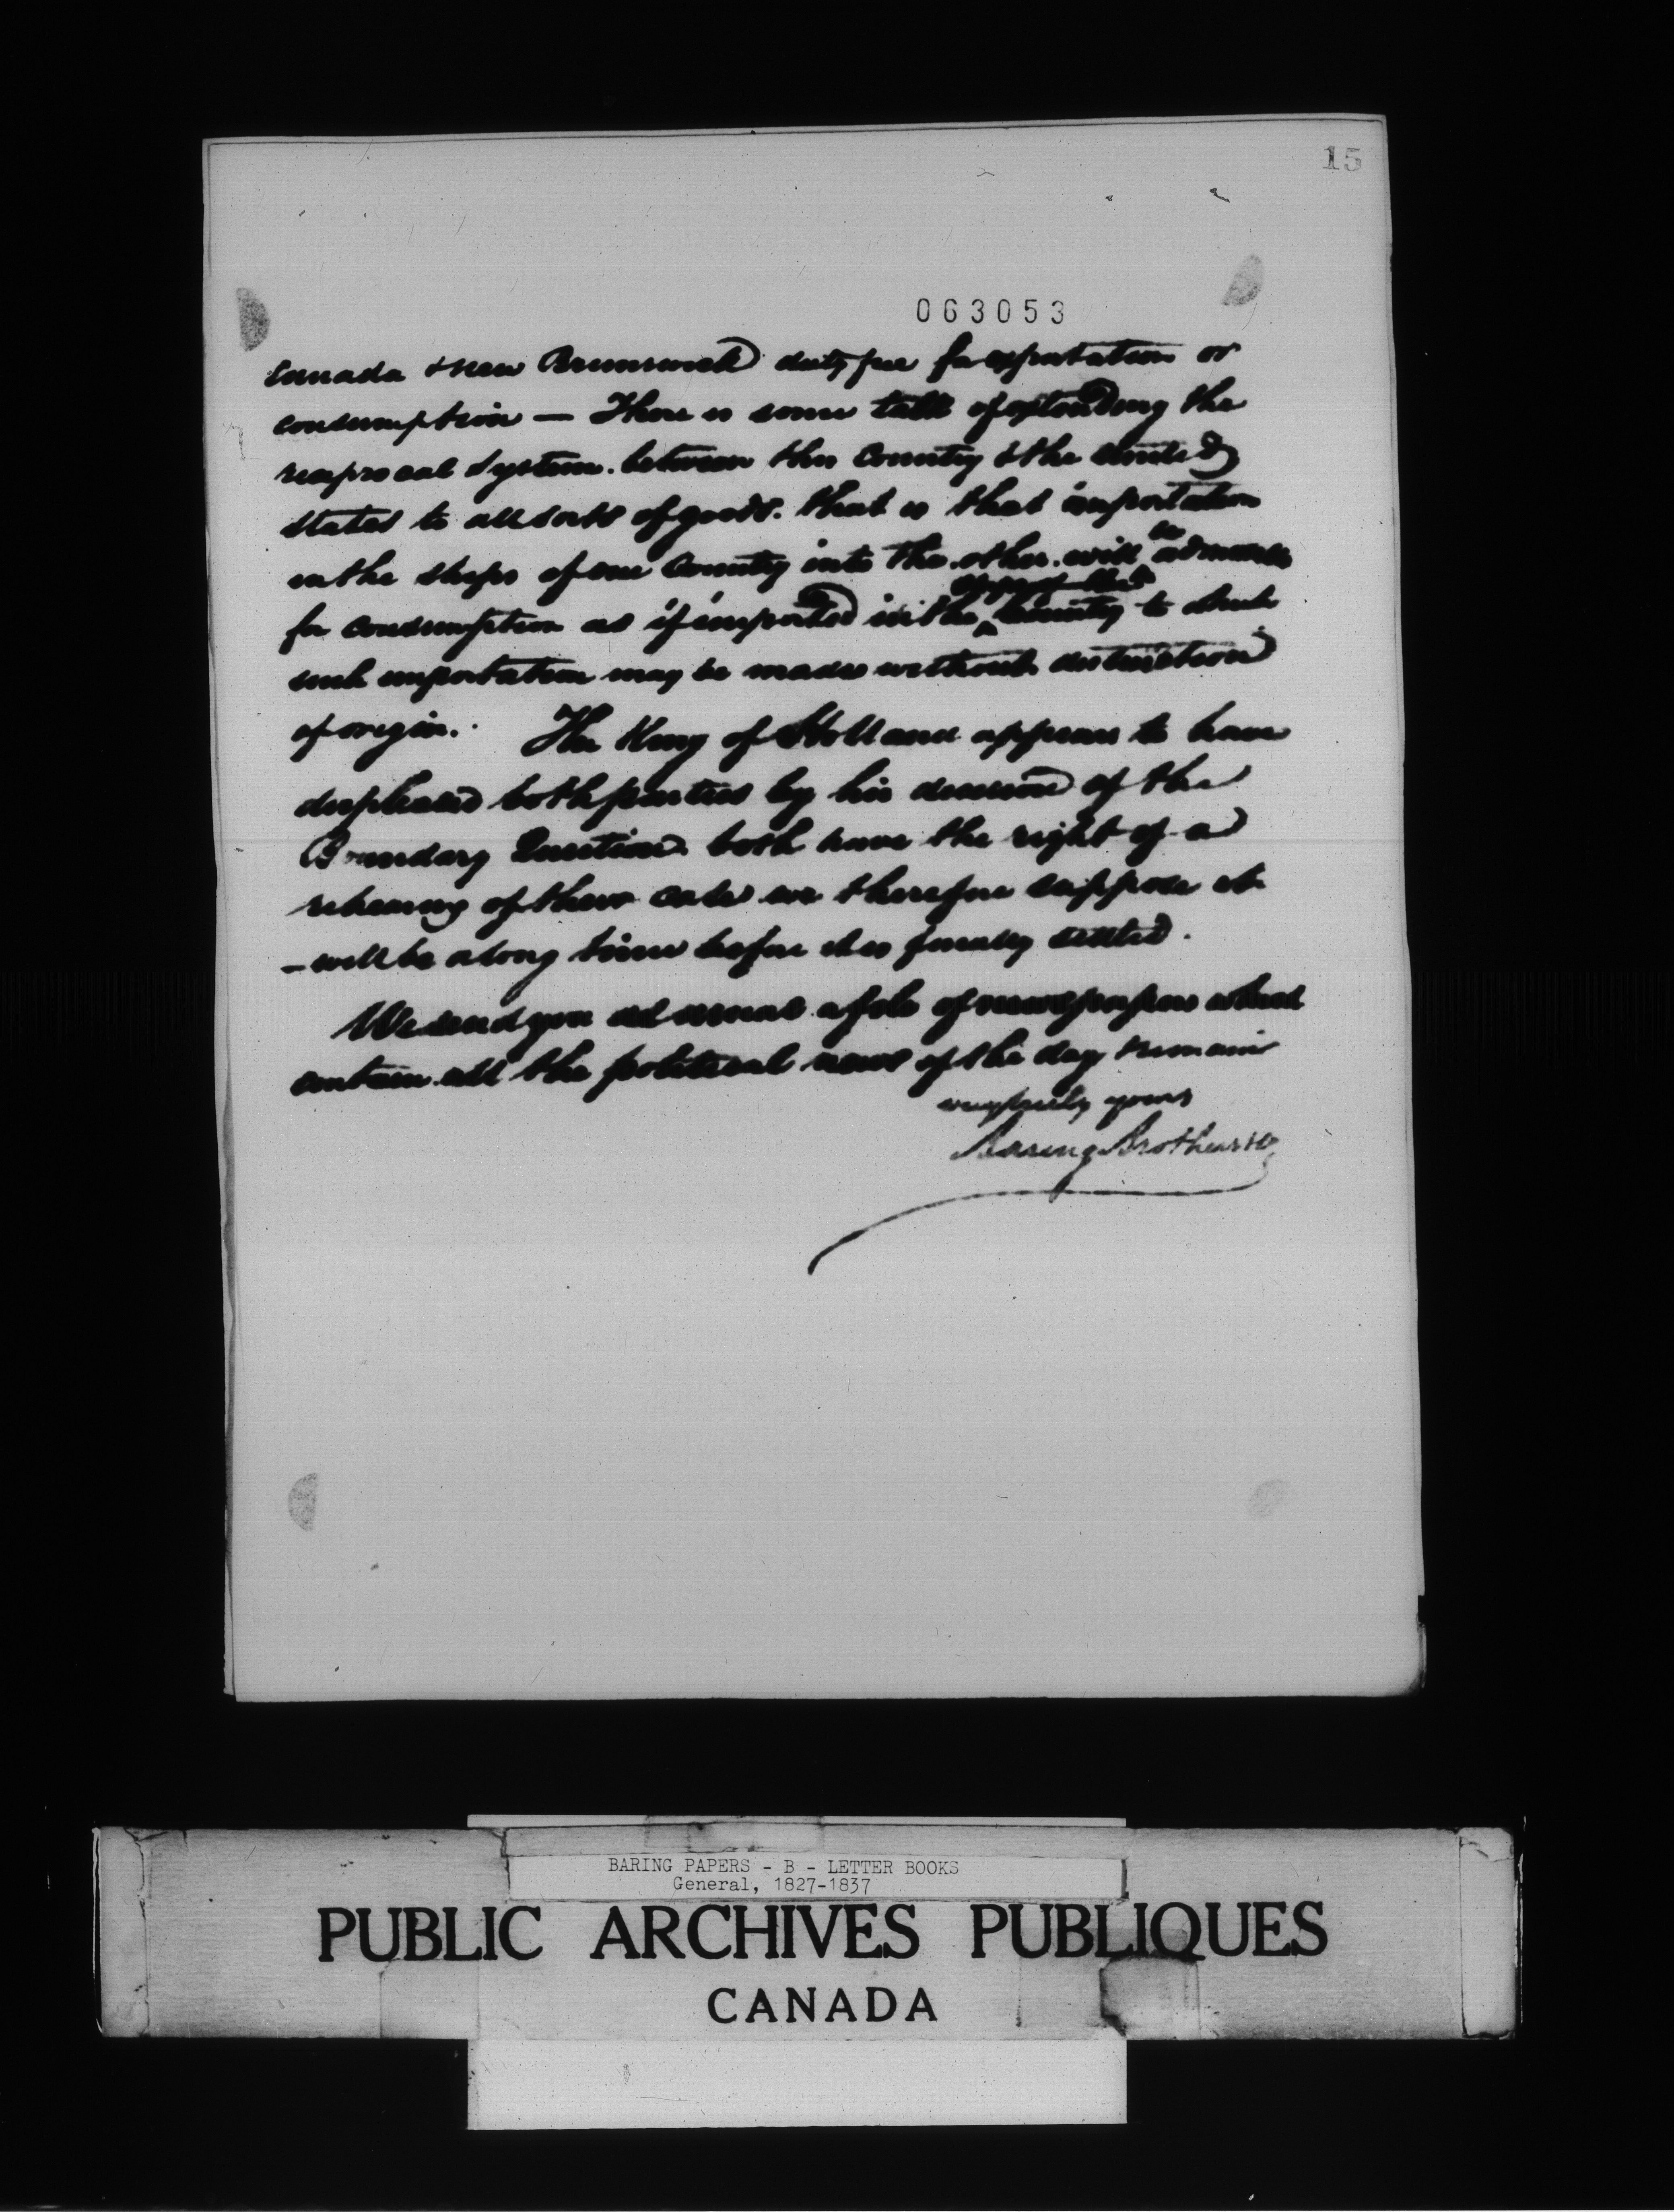 15
063053
Canada & New Brunswick duty free for exportation or
consumption — There is some talk of extending the
reciprocal System. between this Country & the United
States to all sorts of goods. that is that importation
in the ships of one Country into the other. will be admitted
for consumption as if imported in the ships of the Country to which
such importation may be made without distinction
of origin. The King of Holland appears to have
displeased both parties by his decision of the
Boundary Question both have the right of a
rehearing of their case we therefore suppose it
– will be a long time before it is finally settled.
We send you as usual a file of newspapers which
contain all the political news of the day & remain
very truly yours
Baring Brothers & Co
BARING PAPERS - B - LETTER BOOKS
General, 1827-1837
PUBLIC ARCHIVES PUBLIQUES
CANADA